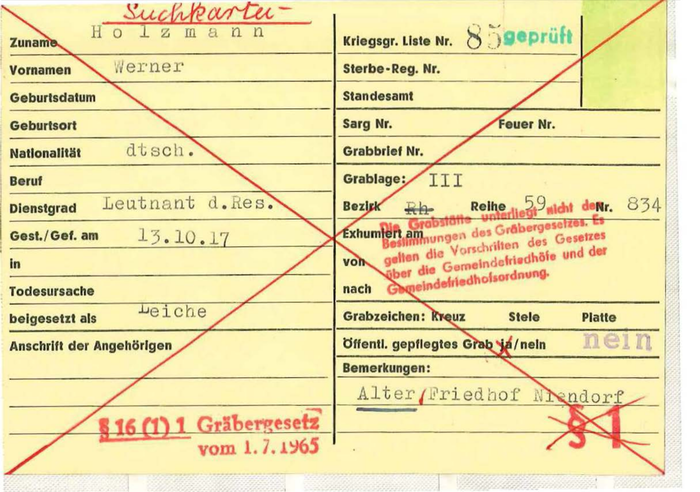 Suchkartei-
Zuname Holzmann
Vornamen Werner
Geburtsdatum
Geburtsort
Nationalität dtsch.
Beruf
Dienstgrad Leutnant d.Res.
Gest./Gef. am 13.10.17
in
Todesursache
beigesetzt als Leiche
Anschrift der Angehörigen
§ 16 (1) 1 Gräbergesetz
vom 1.7.1965
Kriegsgr. Liste Nr. 85 geprüft
Sterbe-Reg. Nr.
Standesamt
Sarg Nr. Feuer Nr.
Grabbrief Nr.
Grablage: III
Bezirk Rh Reihe 59 Nr. 834
Exhumiert am
von
nach
Die Grabstätte unterliegt nicht den
Bestimmungen des Gräbergesetzes. Es
gelten die Vorschriften des Gesetzes
über die Gemeindefriedhöfe und der
Gemeindefriedhofsordnung.
Grabzeichen: Kreuz Stele Platte
Öffentl. gepflegtes Grab ja/nein nein
Bemerkungen:
Alter Friedhof Niendorf
§ 1